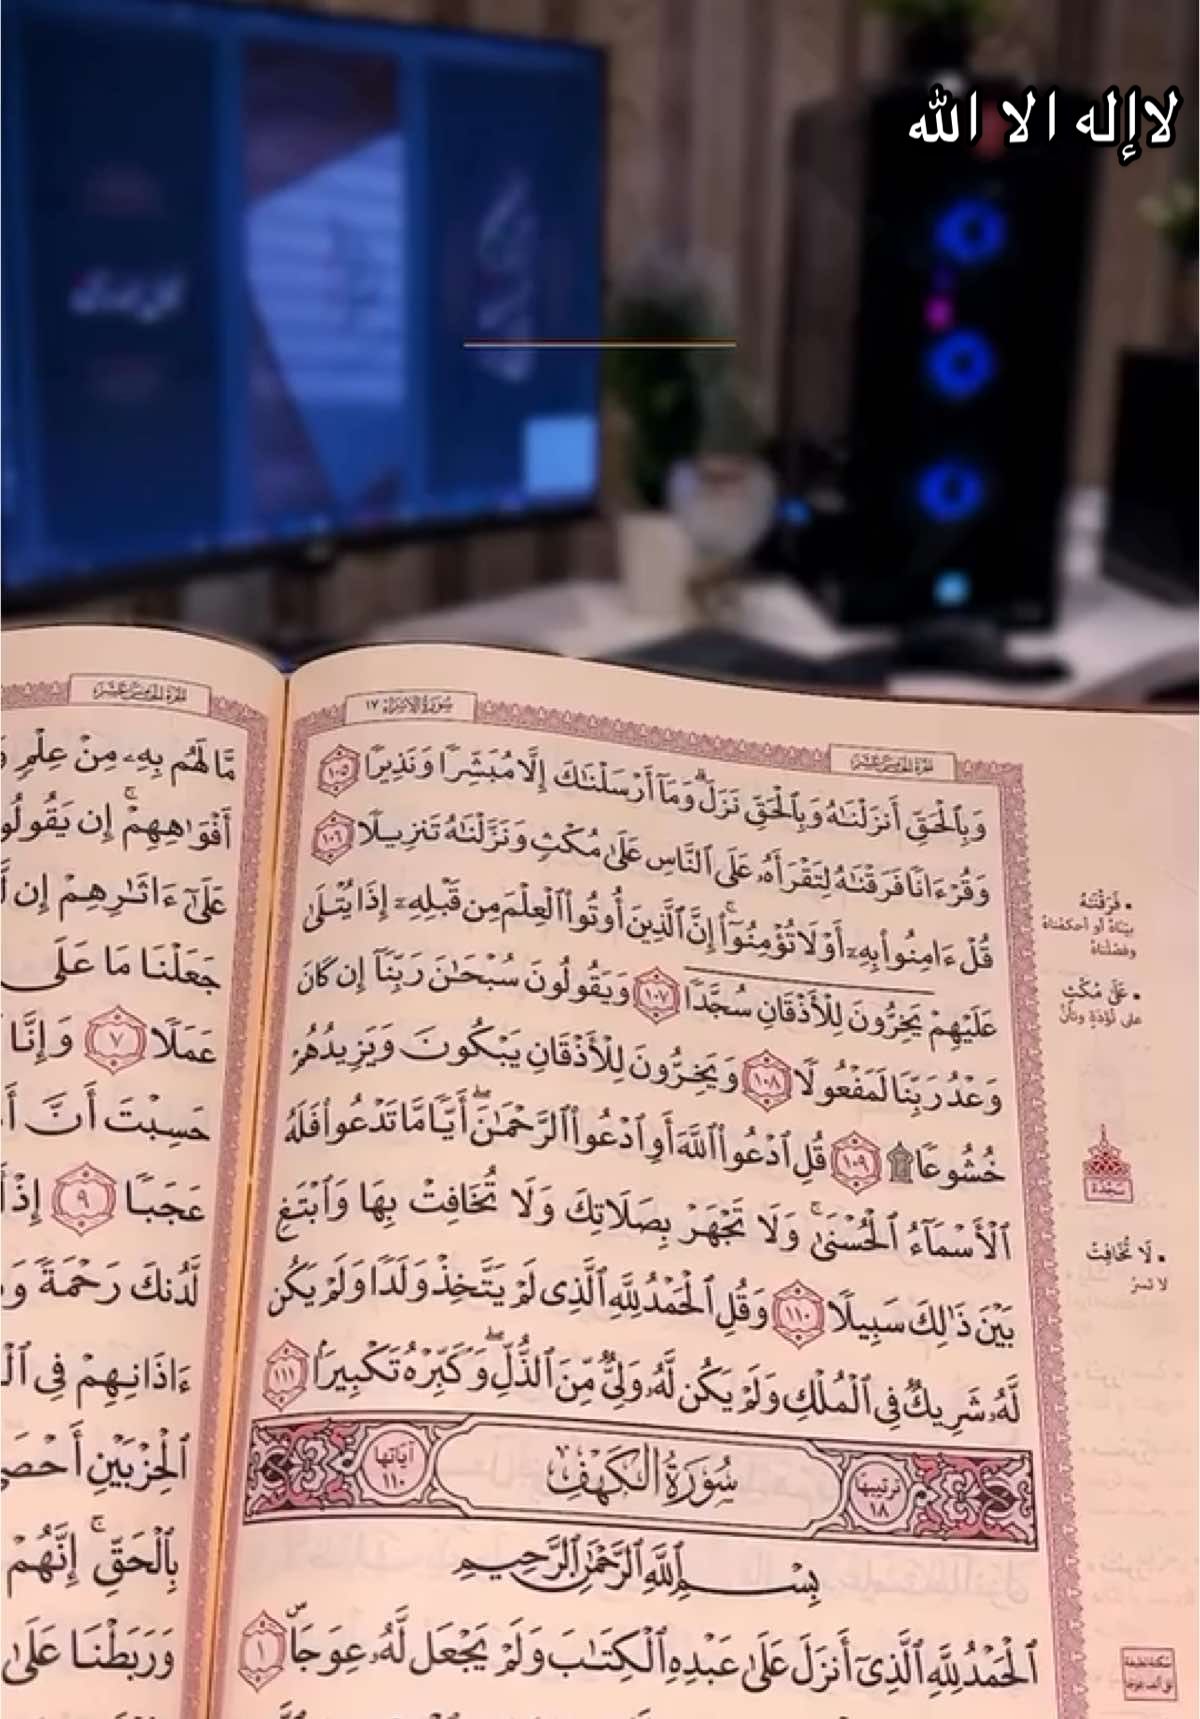 لاإله الا الله
سُورَةُ الإِسْرَاء ١٧
الجزء الخامس عشر
وَبِٱلْحَقِّ أَنزَلْنَٰهُ وَبِٱلْحَقِّ نَزَلَ ۗ وَمَآ أَرْسَلْنَٰكَ إِلَّا مُبَشِّرًا وَنَذِيرًا ١٠٥
وَقُرْءَانًا فَرَقْنَٰهُ لِتَقْرَأَهُۥ عَلَى ٱلنَّاسِ عَلَىٰ مُكْثٍ وَنَزَّلْنَٰهُ تَنزِيلًا ١٠٦
قُلْ ءَامِنُوا۟ بِهِۦٓ أَوْ لَا تُؤْمِنُوٓا۟ ۚ إِنَّ ٱلَّذِينَ أُوتُوا۟ ٱلْعِلْمَ مِن قَبْلِهِۦٓ إِذَا يُتْلَىٰ
عَلَيْهِمْ يَخِرُّونَ لِلْأَذْقَانِ سُجَّدًا ١٠٧ وَيَقُولُونَ سُبْحَٰنَ رَبِّنَآ إِن كَانَ
وَعْدُ رَبِّنَا لَمَفْعُولًا ١٠٨ وَيَخِرُّونَ لِلْأَذْقَانِ يَبْكُونَ وَيَزِيدُهُمْ
خُشُوعًا ۩ ١٠٩ قُلِ ٱدْعُوا۟ ٱللَّهَ أَوِ ٱدْعُوا۟ ٱلرَّحْمَٰنَ ۖ أَيًّا مَّا تَدْعُوا۟ فَلَهُ
ٱلْأَسْمَآءُ ٱلْحُسْنَىٰ ۚ وَلَا تَجْهَرْ بِصَلَاتِكَ وَلَا تُخَافِتْ بِهَا وَٱبْتَغِ
بَيْنَ ذَٰلِكَ سَبِيلًا ١١٠ وَقُلِ ٱلْحَمْدُ لِلَّهِ ٱلَّذِى لَمْ يَتَّخِذْ وَلَدًا وَلَمْ يَكُن
لَّهُۥ شَرِيكٌ فِى ٱلْمُلْكِ وَلَمْ يَكُن لَّهُۥ وَلِىٌّ مِّنَ ٱلذُّلِّ ۖ وَكَبِّرْهُ تَكْبِيرًۢا ١١١
ترتيبها ١٨
سُورَةُ الْكَهْفِ
آياتها ١١٠
بِسْمِ ٱللَّهِ ٱلرَّحْمَٰنِ ٱلرَّحِيمِ
ٱلْحَمْدُ لِلَّهِ ٱلَّذِىٓ أَنزَلَ عَلَىٰ عَبْدِهِ ٱلْكِتَٰبَ وَلَمْ يَجْعَل لَّهُۥ عِوَجَاۜ ١
• فَرَقْنَٰهُ
بيّنّاه أو أحكمناه
وفصّلناه
• عَلَىٰ مُكْثٍ
على تؤدة وتأنّ
سَجْدَة
• لَا تُخَافِتْ
لا تسرّ
الجزء الخامس عشر
مَّا لَهُم بِهِۦ مِنْ عِلْمٍ
أَفْوَٰهِهِمْ ۚ إِن يَقُولُو
عَلَىٰٓ ءَاثَٰرِهِمْ إِن
جَعَلْنَا مَا عَلَى
عَمَلًا ٧ وَإِنَّا
حَسِبْتَ أَنَّ
عَجَبًا ٩ إِذْ
لَّدُنكَ رَحْمَةً
ءَاذَانِهِمْ فِى
ٱلْحِزْبَيْنِ أَحْصَ
بِٱلْحَقِّ ۚ إِنَّهُمْ
وَرَبَطْنَا عَلَىٰ